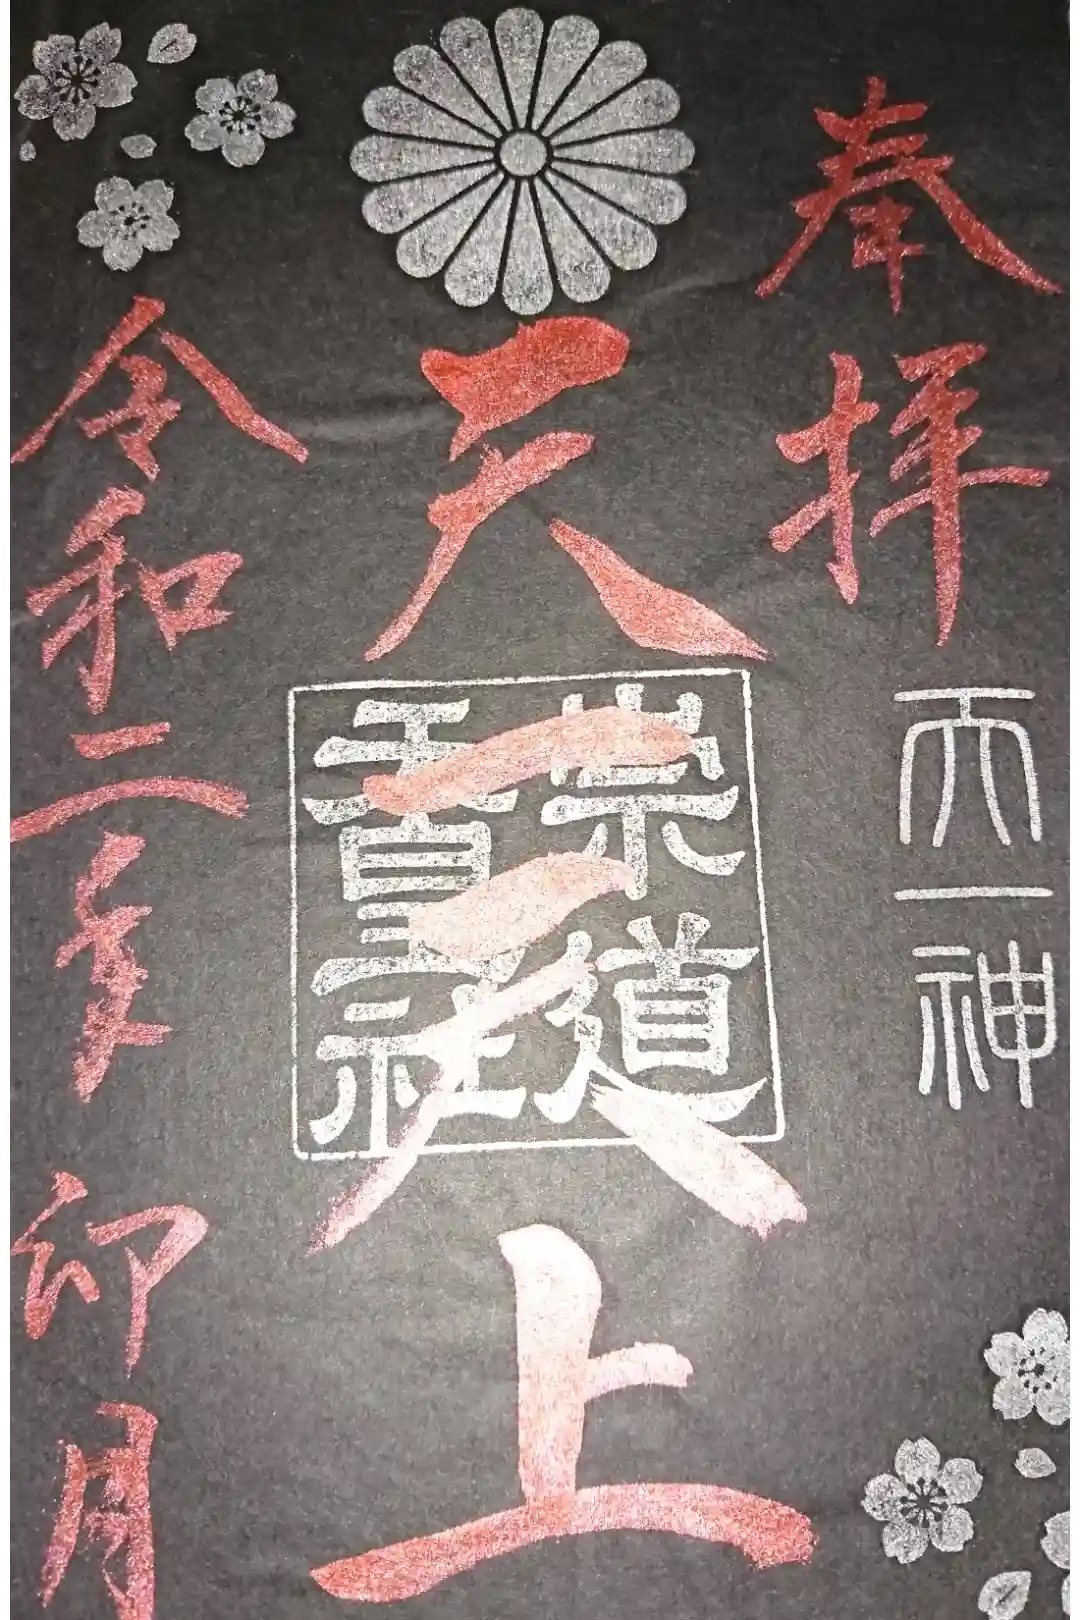 奉拝
天一神
天一天上
崇道
天皇社
令和二年
卯月